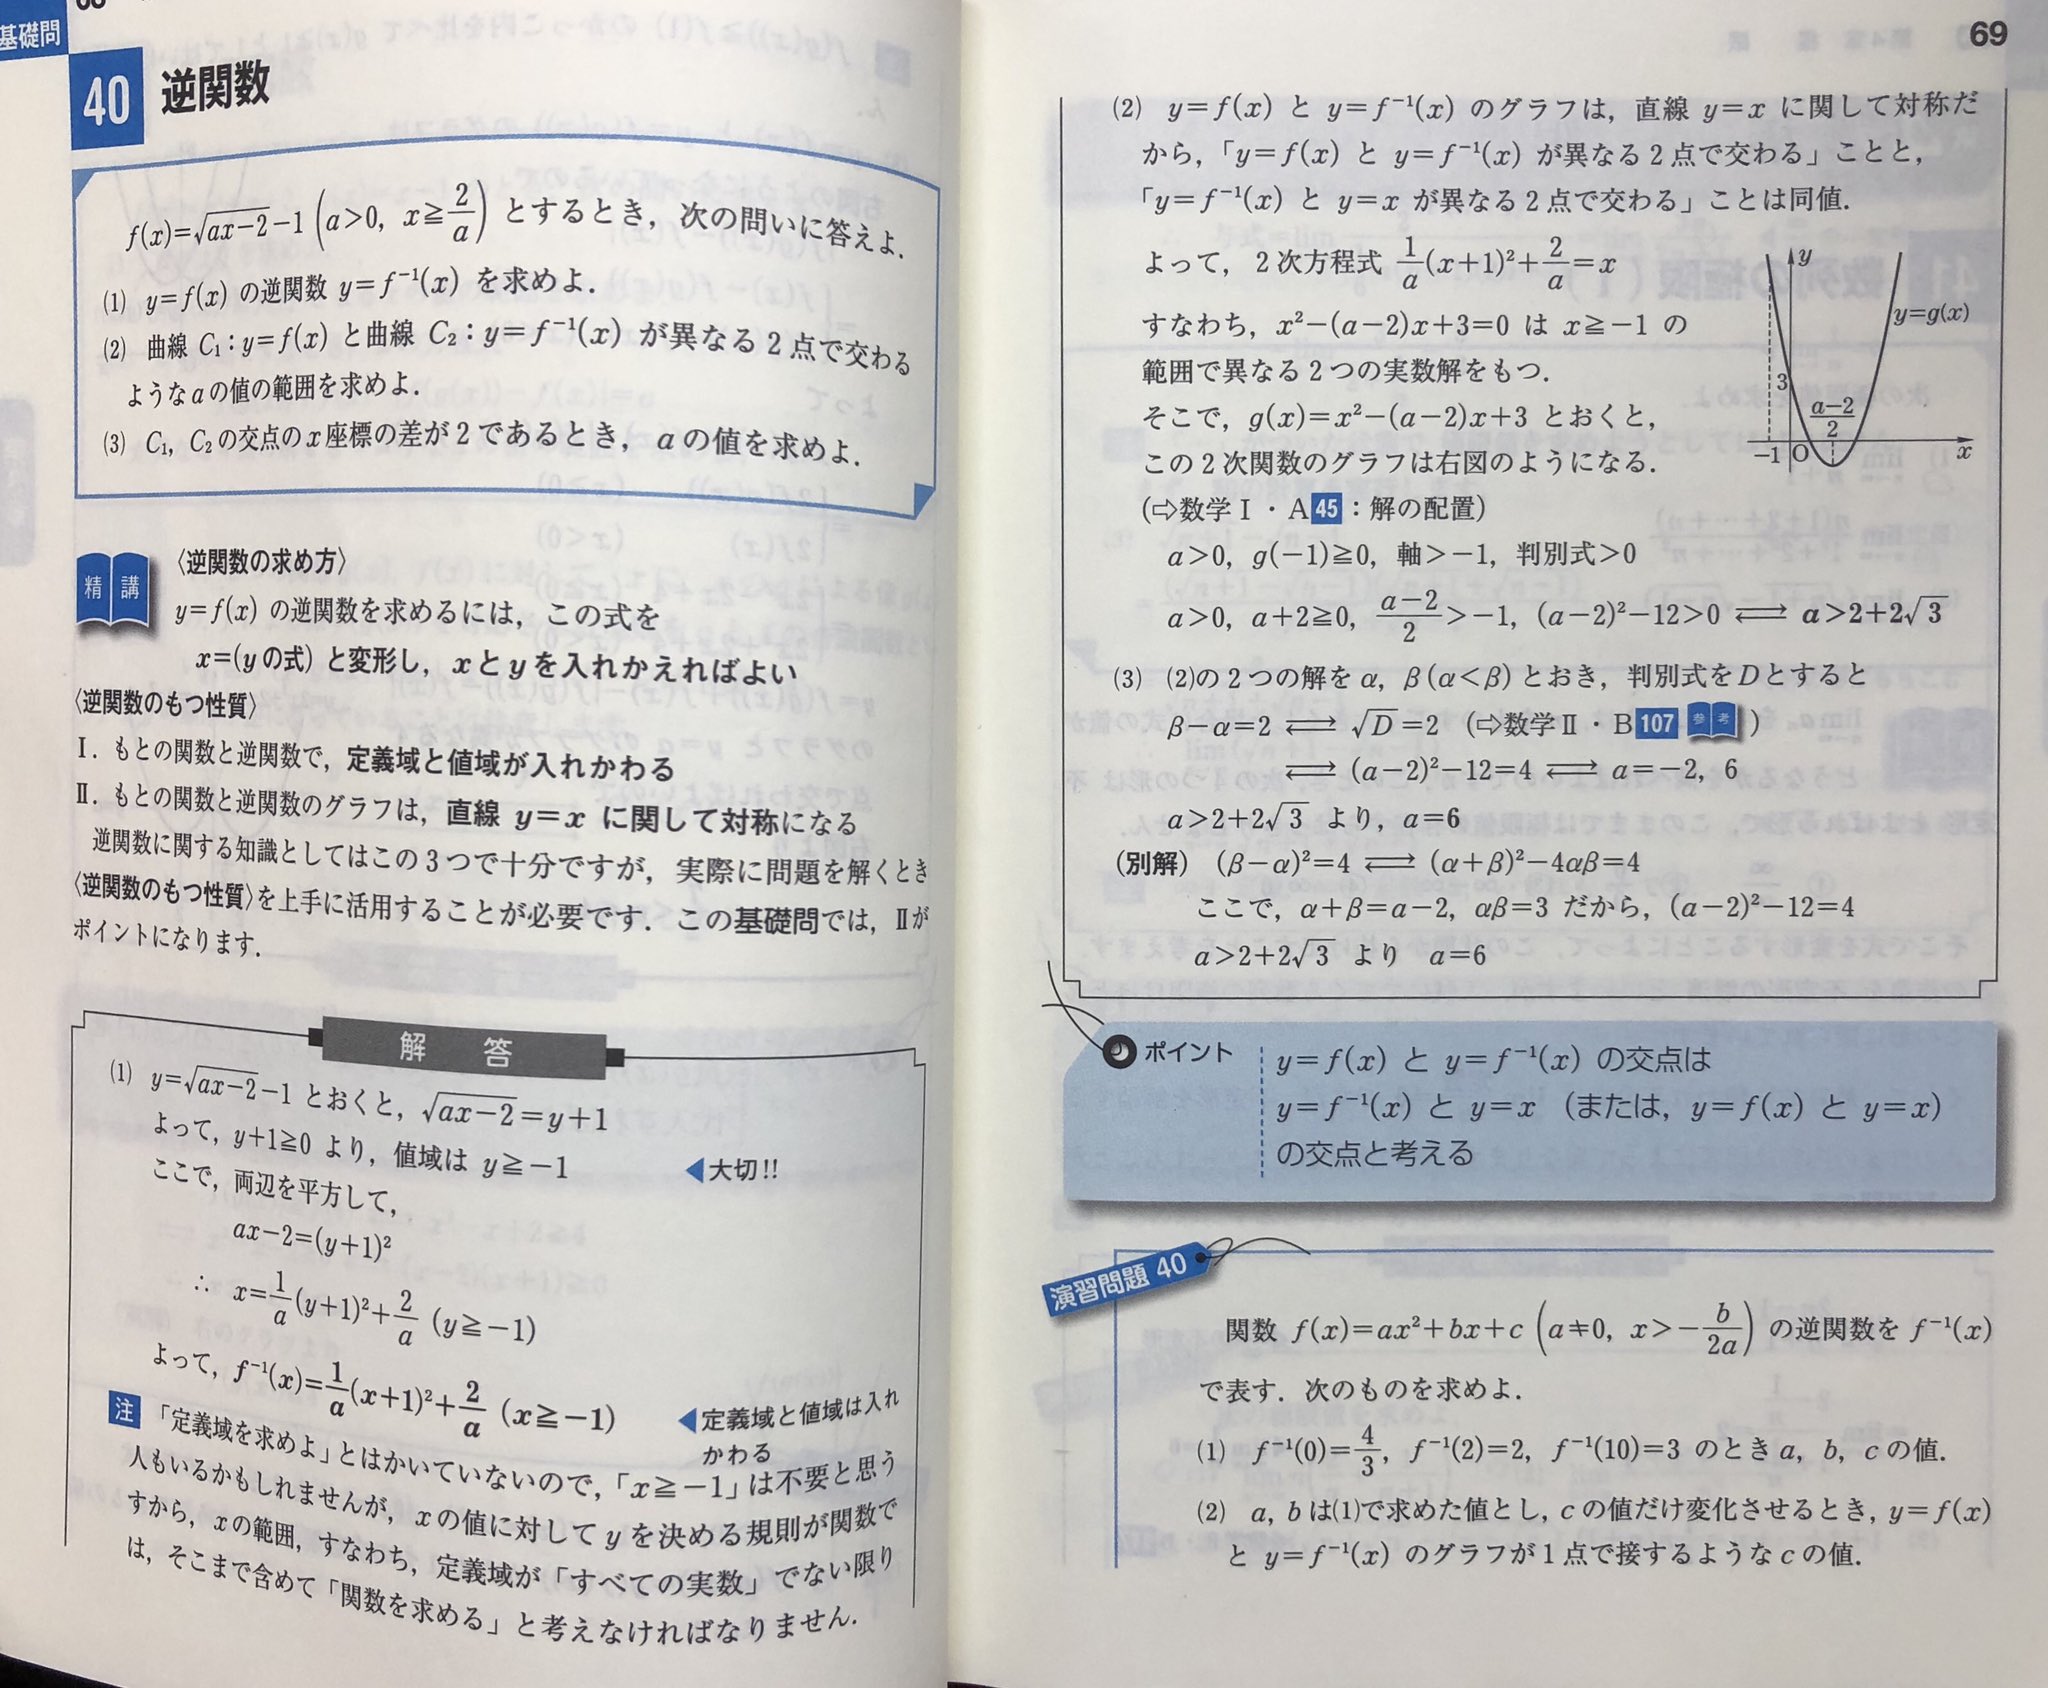 基礎問
40 逆関数
f(x)=√(ax−2)−1 (a>0, x≧2/a) とするとき，次の問いに答えよ．
(1) y=f(x) の逆関数 y=f⁻¹(x) を求めよ．
(2) 曲線 C₁：y=f(x) と曲線 C₂：y=f⁻¹(x) が異なる2点で交わる
ような a の値の範囲を求めよ．
(3) C₁, C₂の交点の x 座標の差が2であるとき，a の値を求めよ．
精講
〈逆関数の求め方〉
y=f(x) の逆関数を求めるには，この式を
x=(y の式) と変形し，x と y を入れかえればよい
〈逆関数のもつ性質〉
Ⅰ．もとの関数と逆関数で，定義域と値域が入れかわる
Ⅱ．もとの関数と逆関数のグラフは，直線 y=x に関して対称になる
逆関数に関する知識としてはこの3つで十分ですが，実際に問題を解くとき
〈逆関数のもつ性質〉を上手に活用することが必要です．この基礎問では，Ⅱが
ポイントになります．
解 答
(1) y=√(ax−2)−1 とおくと，√(ax−2)=y+1
よって，y+1≧0 より，値域は y≧−1
◀大切!!
ここで，両辺を平方して，
ax−2=(y+1)²
∴ x=1/a(y+1)²+2/a (y≧−1)
よって，f⁻¹(x)=1/a(x+1)²+2/a (x≧−1)
◀定義域と値域は入れ
かわる
注 「定義域を求めよ」とはかいていないので，「x≧−1」は不要と思う
人もいるかもしれませんが，x の値に対して y を決める規則が関数で
すから，x の範囲，すなわち，定義域が「すべての実数」でない限り
は，そこまで含めて「関数を求める」と考えなければなりません．
69
(2) y=f(x) と y=f⁻¹(x) のグラフは，直線 y=x に関して対称だ
から，「y=f(x) と y=f⁻¹(x) が異なる2点で交わる」ことと，
「y=f⁻¹(x) と y=x が異なる2点で交わる」ことは同値．
よって，2次方程式 1/a(x+1)²+2/a=x
すなわち，x²−(a−2)x+3=0 は x≧−1 の
範囲で異なる2つの実数解をもつ．
そこで，g(x)=x²−(a−2)x+3 とおくと，
この2次関数のグラフは右図のようになる．
(⇨数学Ⅰ・A45：解の配置)
y
y=g(x)
3
(a−2)/2
−1 O x
a>0, g(−1)≧0, 軸>−1, 判別式>0
a>0, a+2≧0, (a−2)/2>−1, (a−2)²−12>0 ⟺ a>2+2√3
(3) (2)の2つの解を α, β(α<β) とおき，判別式を D とすると
β−α=2 ⟺ √D=2 (⇨数学Ⅱ・B107 参考)
⟺ (a−2)²−12=4 ⟺ a=−2, 6
a>2+2√3 より，a=6
(別解) (β−α)²=4 ⟺ (α+β)²−4αβ=4
ここで，α+β=a−2, αβ=3 だから，(a−2)²−12=4
a>2+2√3 より a=6
ポイント
y=f(x) と y=f⁻¹(x) の交点は
y=f⁻¹(x) と y=x (または，y=f(x) と y=x)
の交点と考える
演習問題 40
関数 f(x)=ax²+bx+c (a≠0, x>−b/2a) の逆関数を f⁻¹(x)
で表す．次のものを求めよ．
(1) f⁻¹(0)=4/3, f⁻¹(2)=2, f⁻¹(10)=3 のとき a, b, c の値．
(2) a, b は(1)で求めた値とし，c の値だけ変化させるとき，y=f(x)
と y=f⁻¹(x) のグラフが1点で接するような c の値．